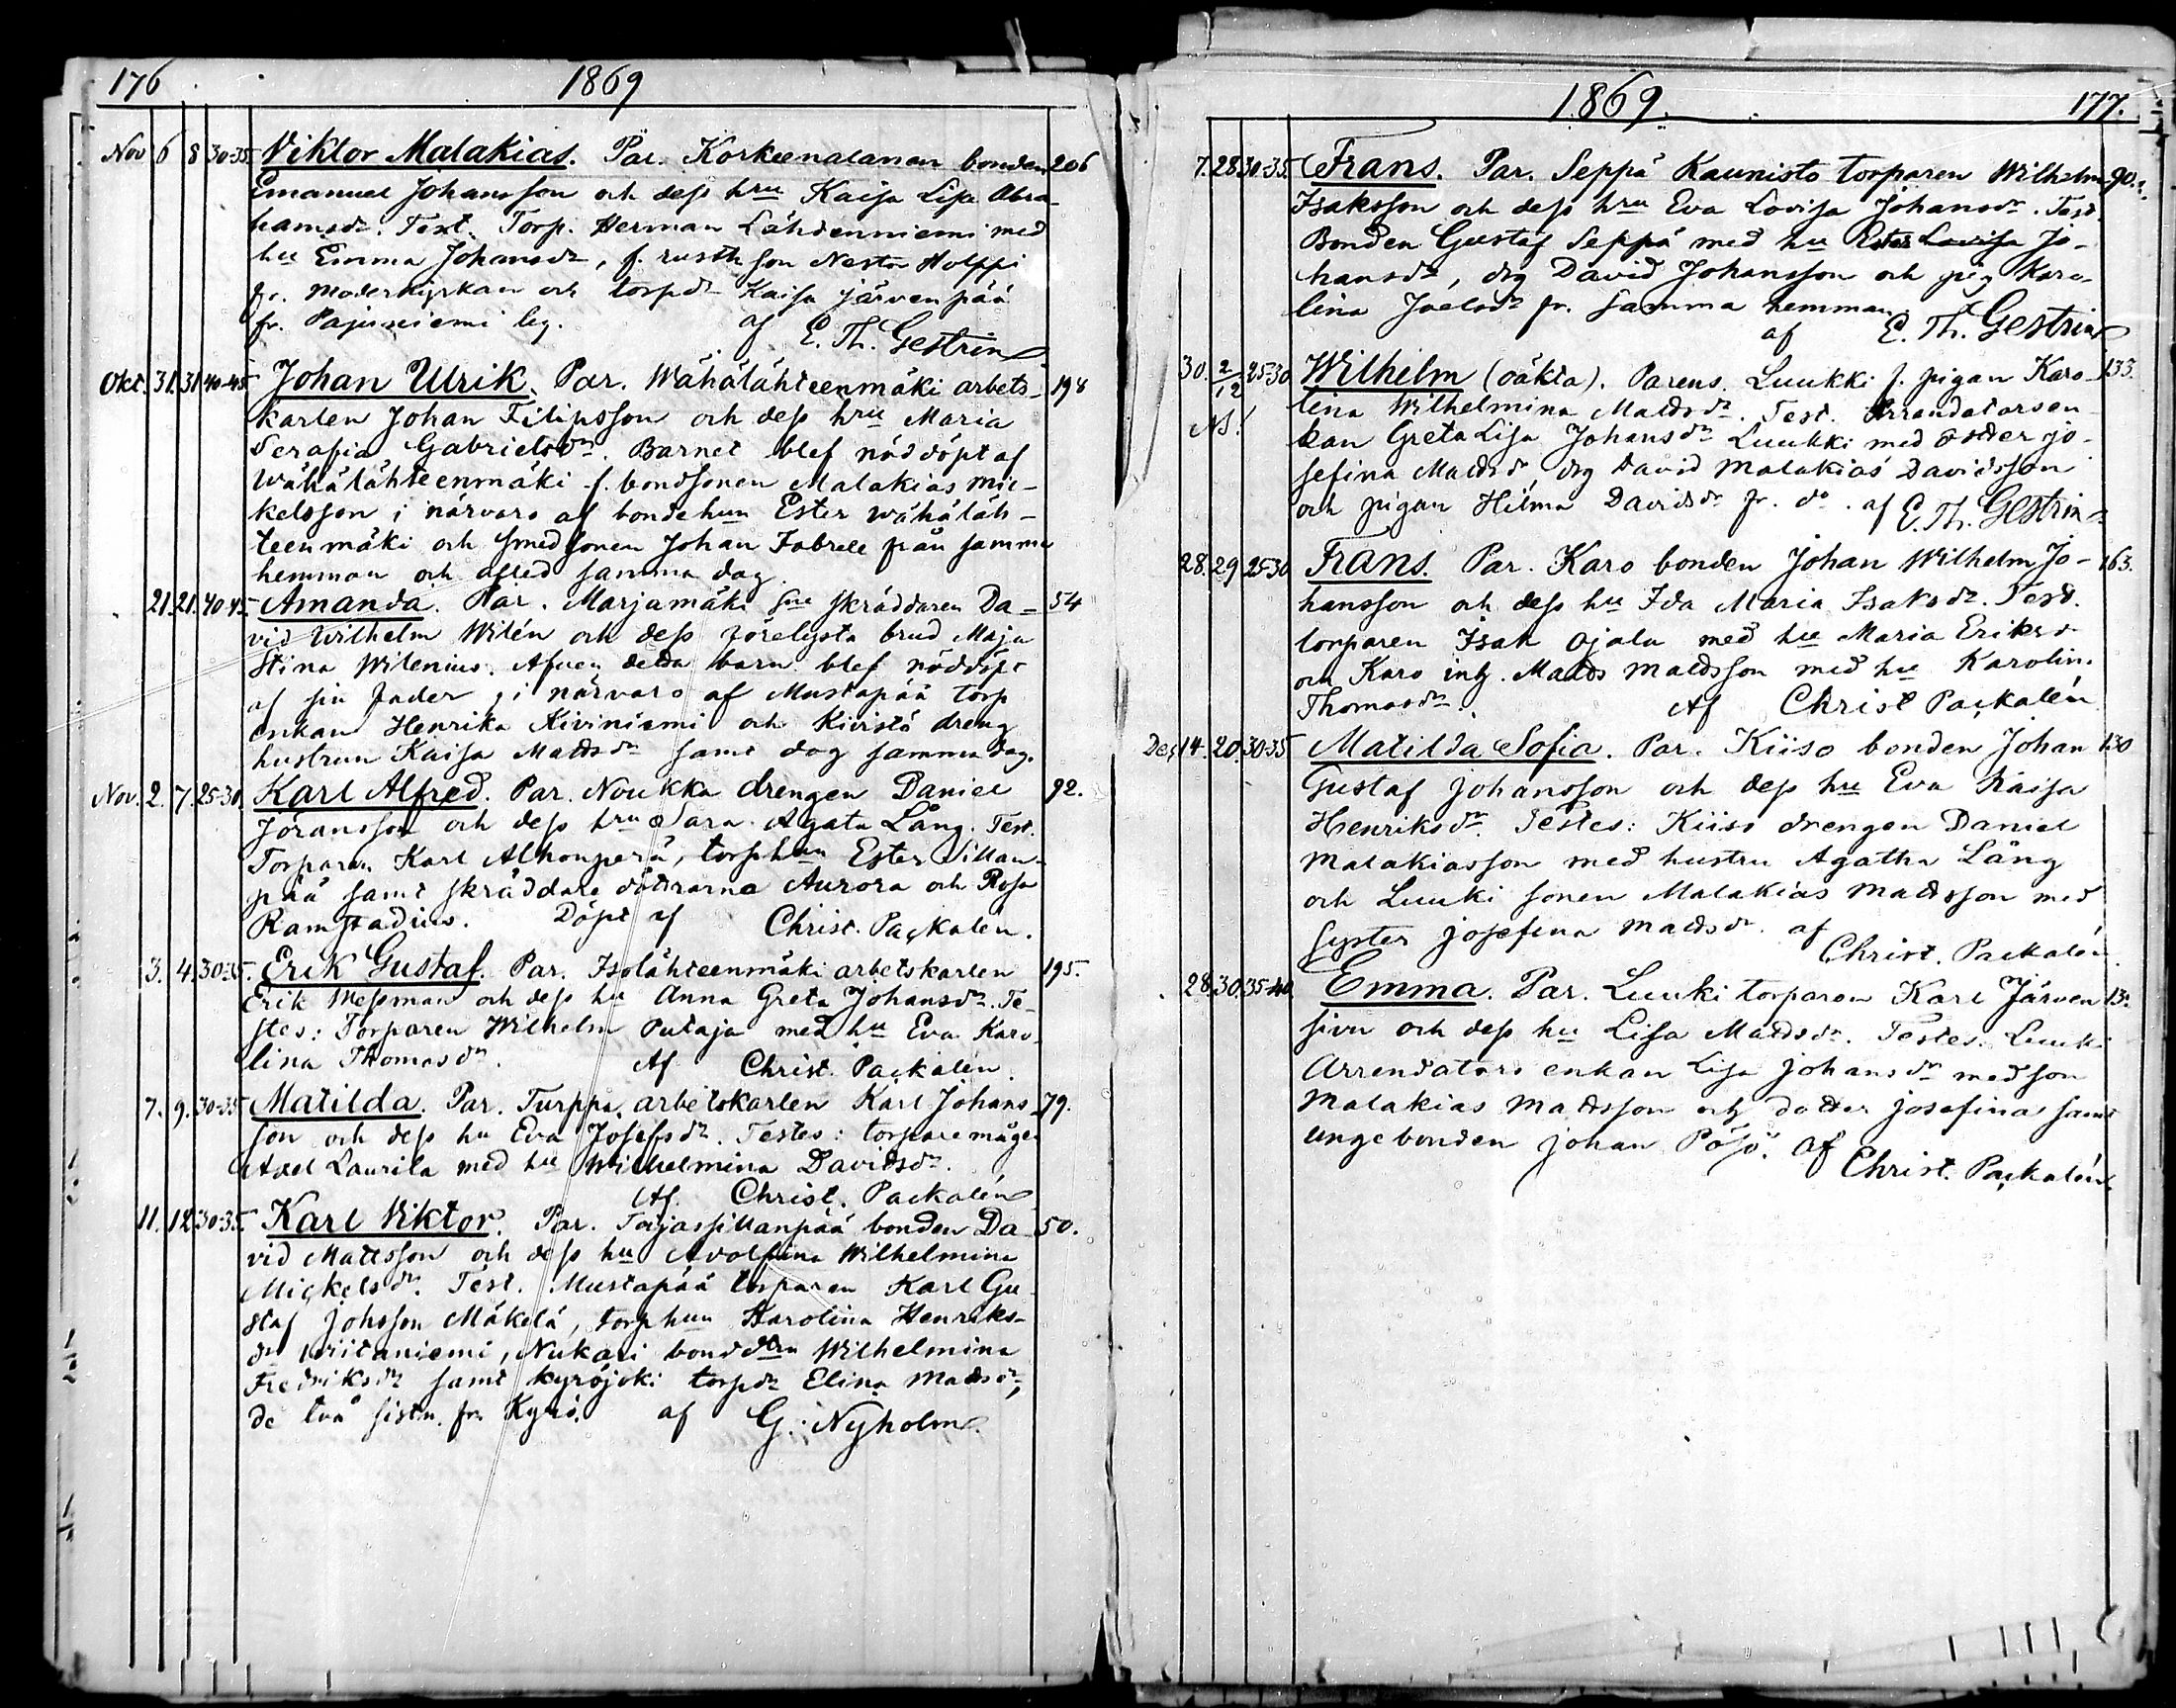 176 1869
Nov 6 8 30-35 Viktor Malakias. Par. Korkeenalanan bonden 206
Emanuel Johansson och dess hru Kaisa Lisa Abra-
hamsdr. Test. Torp. Herman Lähdenniemi med
hu Emma Johansdr, f. rusth son Nestor Holppi
fr. Moderkyrkan och torpdr Kaisa Järvenpää
fr. Pajuniemi leg. af E. Th. Gestrin
Okt. 31. 31 40-45 Johan Ulrik. Par. Wähälähteenmäki arbets- 198
karlen Johan Filipsson och dess hru Maria
Serafia Gabrielsdr. Barnet blef nöddöpt af
Wähälähteenmäki f. bondsonen Malakias Mic-
kelsson i närvaro af bondehun Ester Wähäläh-
teenmäki och smedsonen Johan Fabrell från samma
hemman och afled samma dag.
21. 21. 40-45 Amanda. Par. Marjamäki skräddaren Da- 54
vid Wilhelm Wilén och dess förelysta brud Maja
Stina Wilenius. Afven detta barn blef nöddöpt
af sin fader, i närvaro af Mustapää torp
enkan Henrika Kiviniemi och Kivistö dreng
hustrun Kaisa Mattsdr samt dog samma dag.
Nov. 2. 7. 25-30. Karl Alfred. Par. Noukka drengen Daniel 92.
Göransson och dess hru Sara Agata Lång. Test.
Torparen Karl Alhonperä, torphun Ester Sillan-
pää samt skräddare döttrarna Aurora och Rosa
Ramstadius. Döpt af Christ. Packalén.
3. 4. 30-35. Erik Gustaf. Par. Isolähteenmäki arbetskarlen 195.
Erik Messman och dess hu Anna Greta Johansdr. Te-
stes: Torparen Wilhelm Putaja med hu Eva Karo-
lina Thomasdr. Af Christ. Packalén.
7. 9. 30-35 Matilda. Par. Turppa arbetskarlen Karl Johans- 79.
son och dess hu Eva Josefsdr. Testes: torpare mågen
Axel Laurila med hu Wilhelmina Davidsdr.
Af Christ. Packalén
11. 12 30-35. Karl Viktor. Par. Torjassillanpää bonden Da- 50.
vid Mattsson och dess hu Adolfina Wilhelmina
Mickelsdr. Test. Mustapää torparen Karl Gu
staf Johsson Mäkelä, torphun Karolina Henriks-
dr Writaniemi, Nukari bonddtrn Wilhelmina
Fredriksdr samt Kyröjoki torpdr Elina Mattsdr,
de två sistn. fr. Kyrö. af G. Nyholm.
1869. 177.
7. 28 30-35. Frans. Par. Seppä Kaunisto torparen Wilhelm 90.
Isaksson och dess hru Eva Lovisa Johansdr. Test.
Bonden Gustaf Seppä med hu Lovisa Jo-
hansdr, drg David Johansson och pig Karo-
lina Joelsdr fr. samma hemman.
af E. Th. Gestrin
30. 2/12 25-30 Wilhelm (oäkta). Parens. Luukki f. pigan Karo- 133.
NB! lina Wilhelmina Mattsdr. Test. Arrendatorsen-
kan Greta Lisa Johansdr Luukki med dotter Jo-
sefina Mattsdr drg David Malakias Davidsson
och pigan Hilma Davidsdr fr. do. af E. Th. Gestrin
28. 29 25-30 Frans. Par. Karo bonden Johan Wilhelm Jo- 163.
hansson och dess hu Ida Maria Isaksdr. Test.
torparen Isak Ojala med hu Maria Eriksdr
och Karo inh. Matts Mattsson med hu Karolin.
Thomasdr. Af Christ Packalén
Dec 14. 20. 30-35 Matilda Sofia. Par. Kiiso bonden Johan 130
Gustaf Johansson och dess hru Eva Kaisa
Henriksdr. Testes: Kiiso drengen Daniel
Malakiasson med hustru Agatha Lång
och Luuki sonen Malakias Mattsson med
syster Josefina Mattsdr. af
Christ. Packalén.
28. 30. 35-40 Emma. Par. Luuki torparen Karl Järven
sivu och dess hu Lisa Mattsdr. Testes. Luuki
Arrendators enkan Lisa Johansdr med son
Malakias Mattsson och dotter Josefina samt
ungebonden Johan Pösö. Af Christ. Packalén.